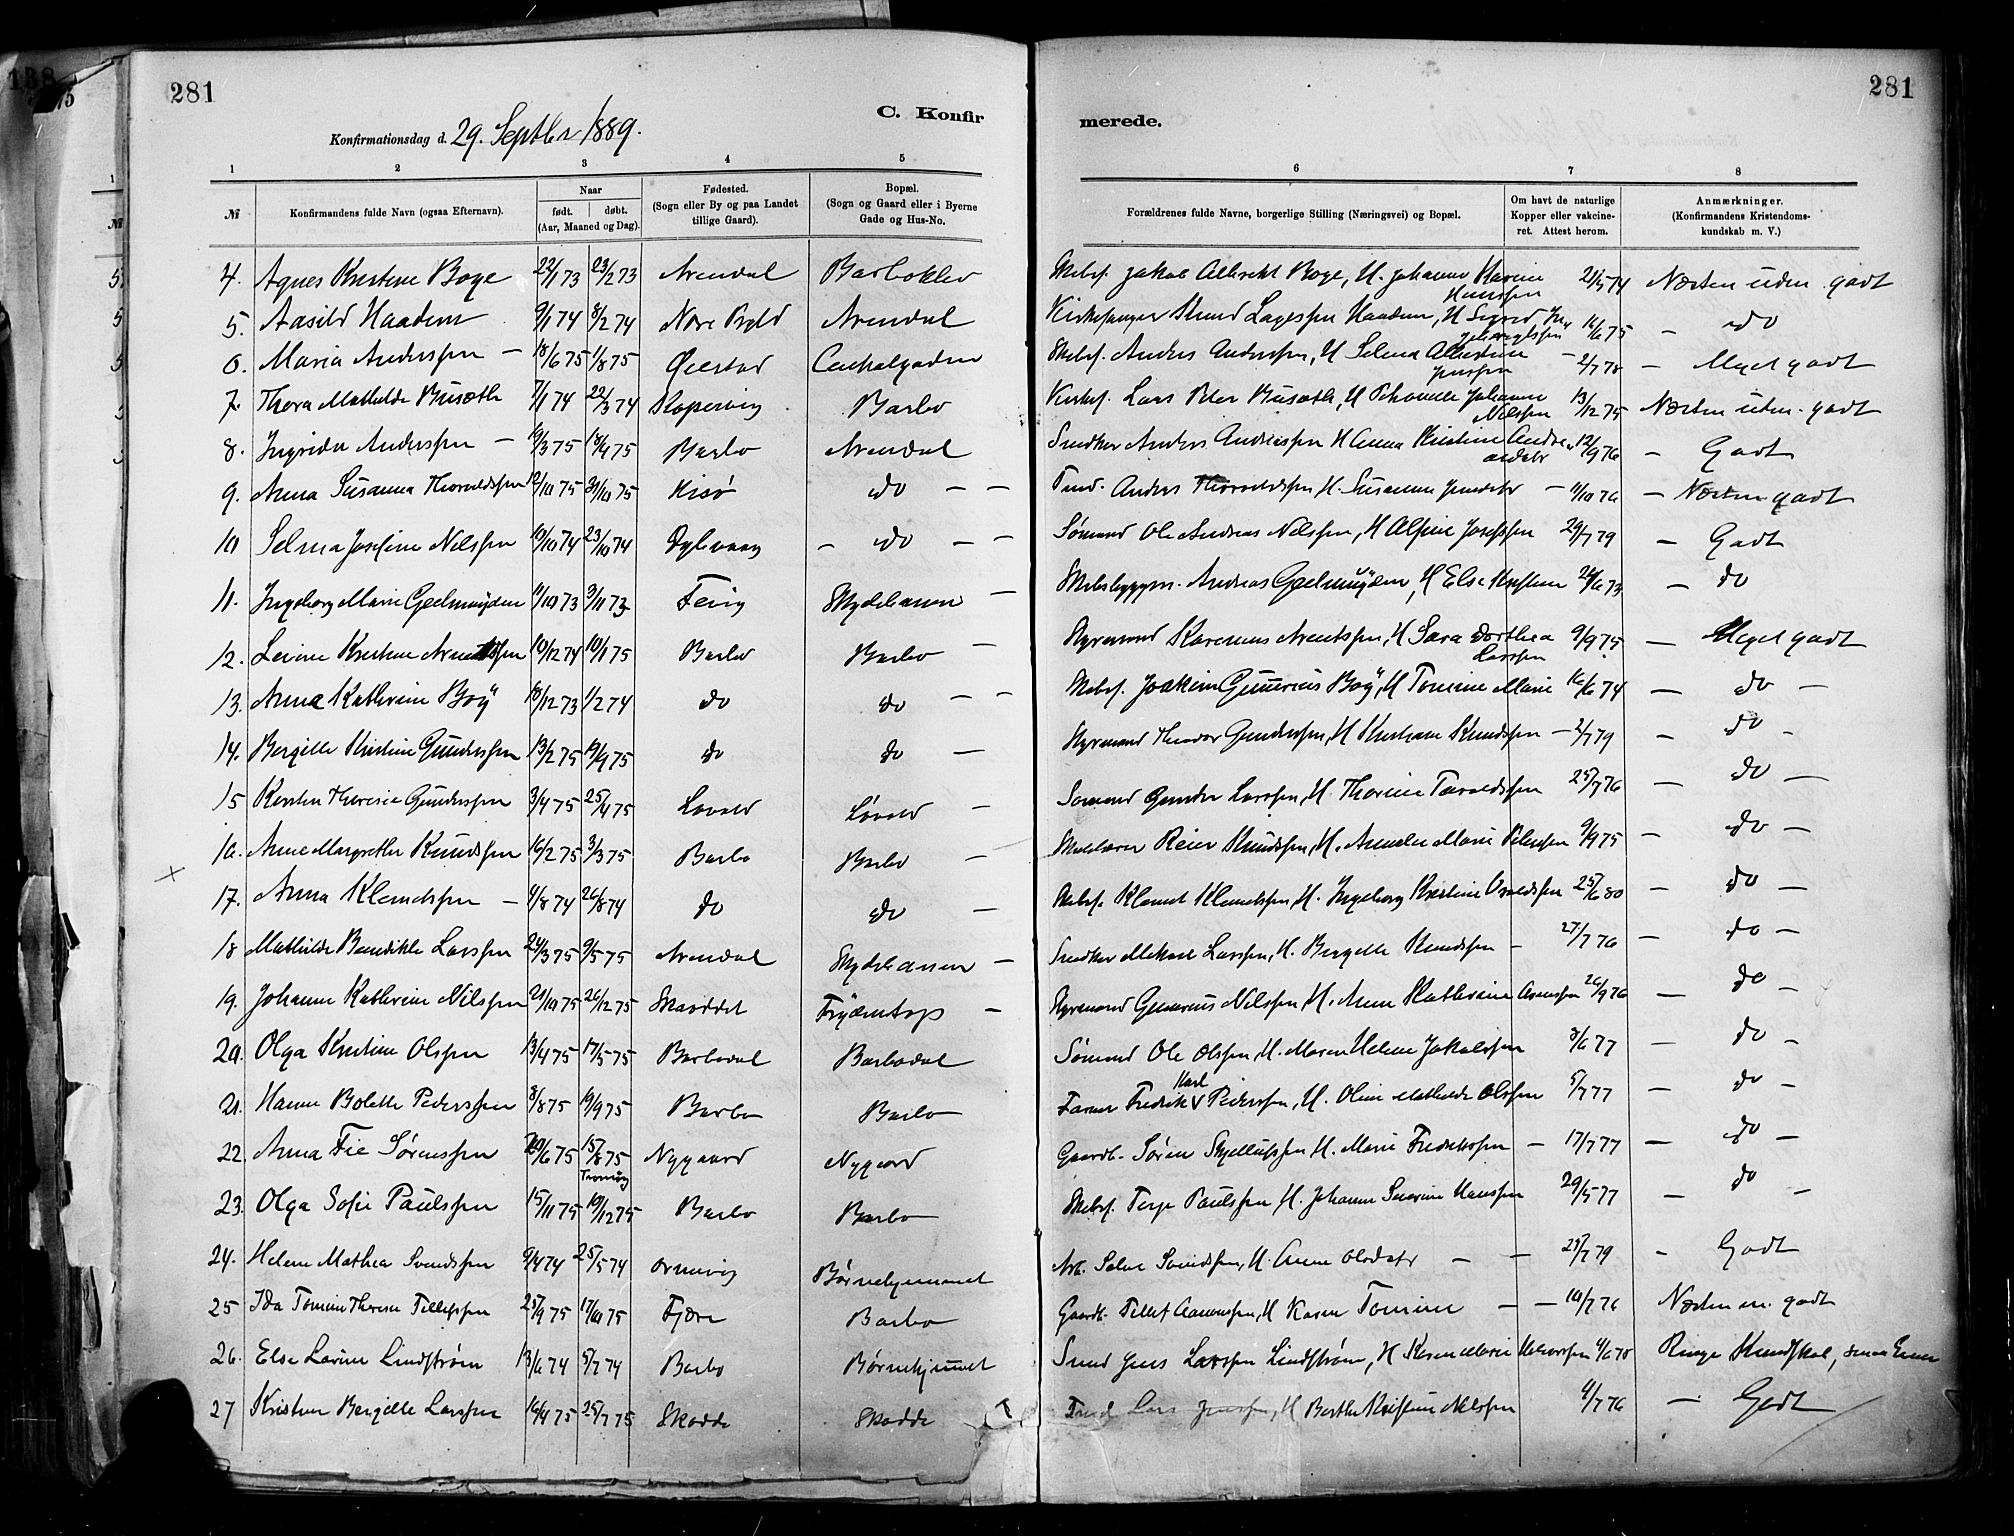 281
281
C. Konfir
merede.
Konfirmationsdag d. 29. Septbr 1889.
1 2 3 4 5 6 7 8
№ Konfirmandens fulde Navn (ogsaa Efternavn). Naar født. døbt. (Aar, Maaned og Dag). Fødested. (Sogn eller By og paa Landet tillige Gaard). Bopæl. (Sogn og Gaard eller i Byerne Gade og Hus-No. Forældrenes fulde Navne, borgerlige Stilling (Næringsvei) og Bopæl. Om havt de naturlige Kopper eller vakcineret. Attest herom. Anmærkninger. (Konfirmandens Kristendomskundskab m. V.)
4. Agnes Kristine Boge 22/1 73 23/2 73 Arendal Barboklev Jakob Albrekt Boge, H. Johanne Karine Hanssen 21/5 74 Næsten uden. godt
5. Aasild Haadem 9/1 74 8/2 74 Arendal Kirkesanger Lagessen Haadem, H Sigrid 16/6 75 – do
6. Maria Anderssen – 18/6 75 1/8 75 Øiestad Centralgaden Anders Anderssen, H Selma Jenssen – 2/7 78 – Meget godt
7. Thora Mathilde Busæth 7/1 74 22/3 74 Kopervig Barbo Lars Peter Busæth, H Johanne Nilssen 13/12 75 Næsten uden. godt
8. Ingrida Anderssen – 19/3 75 18/4 75 Barbo Arendal Snedker Anders Andreassen H Anna Kristine 12/9 76 – Godt
9. Anna Susanna Thorvaldssen 12/10 75 31/10 75 Hisø do – – Andreas Thorvaldssen H. Susanne Jensdatr – 11/10 76 – Næsten godt
10 Selma Josefine Nilssen 10/10 74 23/10 74 Dybvaag – do – – Sømand Ole Andreas Nilssen, H Alfine Josefssen 29/7 79 – Godt
11. Ingeborg Marie Geelmuyden 11/10 73 3/11 73 Fevig Skydebanen – Skibsbyggm. Andreas Geelmuyden, H Else Kristine 24/6 73 – do
12. Levine Kristine Arentssen 10/12 74 10/1 75 Barbo Barbo – Styrmand Karenius Arentssen, H Sara Dorthea Larssen 9/9 75 – Meget godt
13. Anna Kathrine Boÿ 18/12 73 1/2 74 do do – – Joakim Gunerius Boÿ, H Tomine Marie 16/6 74 – do –
14. Bergitte Kristine Gunderssen 13/2 75 19/9 75 do do – Styrmand Theodor Gunderssen, H Kristiane Knudssen – 2/7 79 – do –
15 Kirsten Theresie Gunderssen 3/4 75 25/4 75 Lovold Lovold – Sømand Gunder Larssen, H. Thorine Taraldssen 25/7 76 – do –
16. Anne Margrethe Knudssen 16/2 75 3/3 75 Barbo Barbo – Reier Knudssen, H. Amalie Marie 9/9 75 – do –
17. Anna Klemetssen – 4/8 74 26/8 74 do do – Klemet Klemetssen, H. Ingeborg Kristine Osvaldssen 25/6 80 – do –
18 Mathilde Benedikte Larssen 24/3 75 9/5 75 Arendal Skydebanen – Snedker Mikael Larssen, H. Bergitte Knudssen – 27/7 76 – do –
19. Johanne Kathrine Nilssen 21/10 75 26/12 75 Skaddet – Styrmand Gunerius Nilssen, H. Anne Kathrine Asmussen 26/9 76 – do –
20. Olga Kristine Olssen 13/4 75 17/5 75 Barbodal Barbodal Sømand Ole Olssen, H. Maren Helene Jakobssen 8/6 77 – do –
21. Hanne Bolette Pederssen 8/8 75 19/9 75 Barbo Barbo Farver Fredrik Karl Pederssen, H. Oline Mathilde Olssen 5/7 77 – do –
22. Anna Fie Sørenssen 20/6 75 15/8 75 Tromøy Nygaard Nygaard Gaardb. Søren H. Marie Fredrikssen – 17/7 77 – do –
23. Olga Sofie Paulssen 15/11 75 19/12 75 Barbo Barbo Terje Paulssen, H. Johanne Severine Hanssen 29/5 77 – do –
24. Helene Mathea Svendssen 9/4 74 25/5 74 Ormevig Børnehjemmet Arb. Salve Svendssen, H. Anne Olsdatr – – 21/7 79 – Godt
25 Ida Tomine Therese Tellefssen 25/9 75 17/10 75 Fjære Barbo Gaardb. Tellef Aanonssen, H Karen Tomine – – 10/7 76 Næsten m. godt
26. Else Lovine Lindstrøm 13/6 74 5/7 74 Barbo Børnehjemmet Smed Jens Larssen Lindstrøm, H Karen Marie 4/6 78 Ringe Kundskab,
27 Kristine Bergitte Larssen 16/4 75 25/7 75 Skodde Skodde Lars Jenssen, H Berthe Kristine Nilssen 4/7 76 – Godt